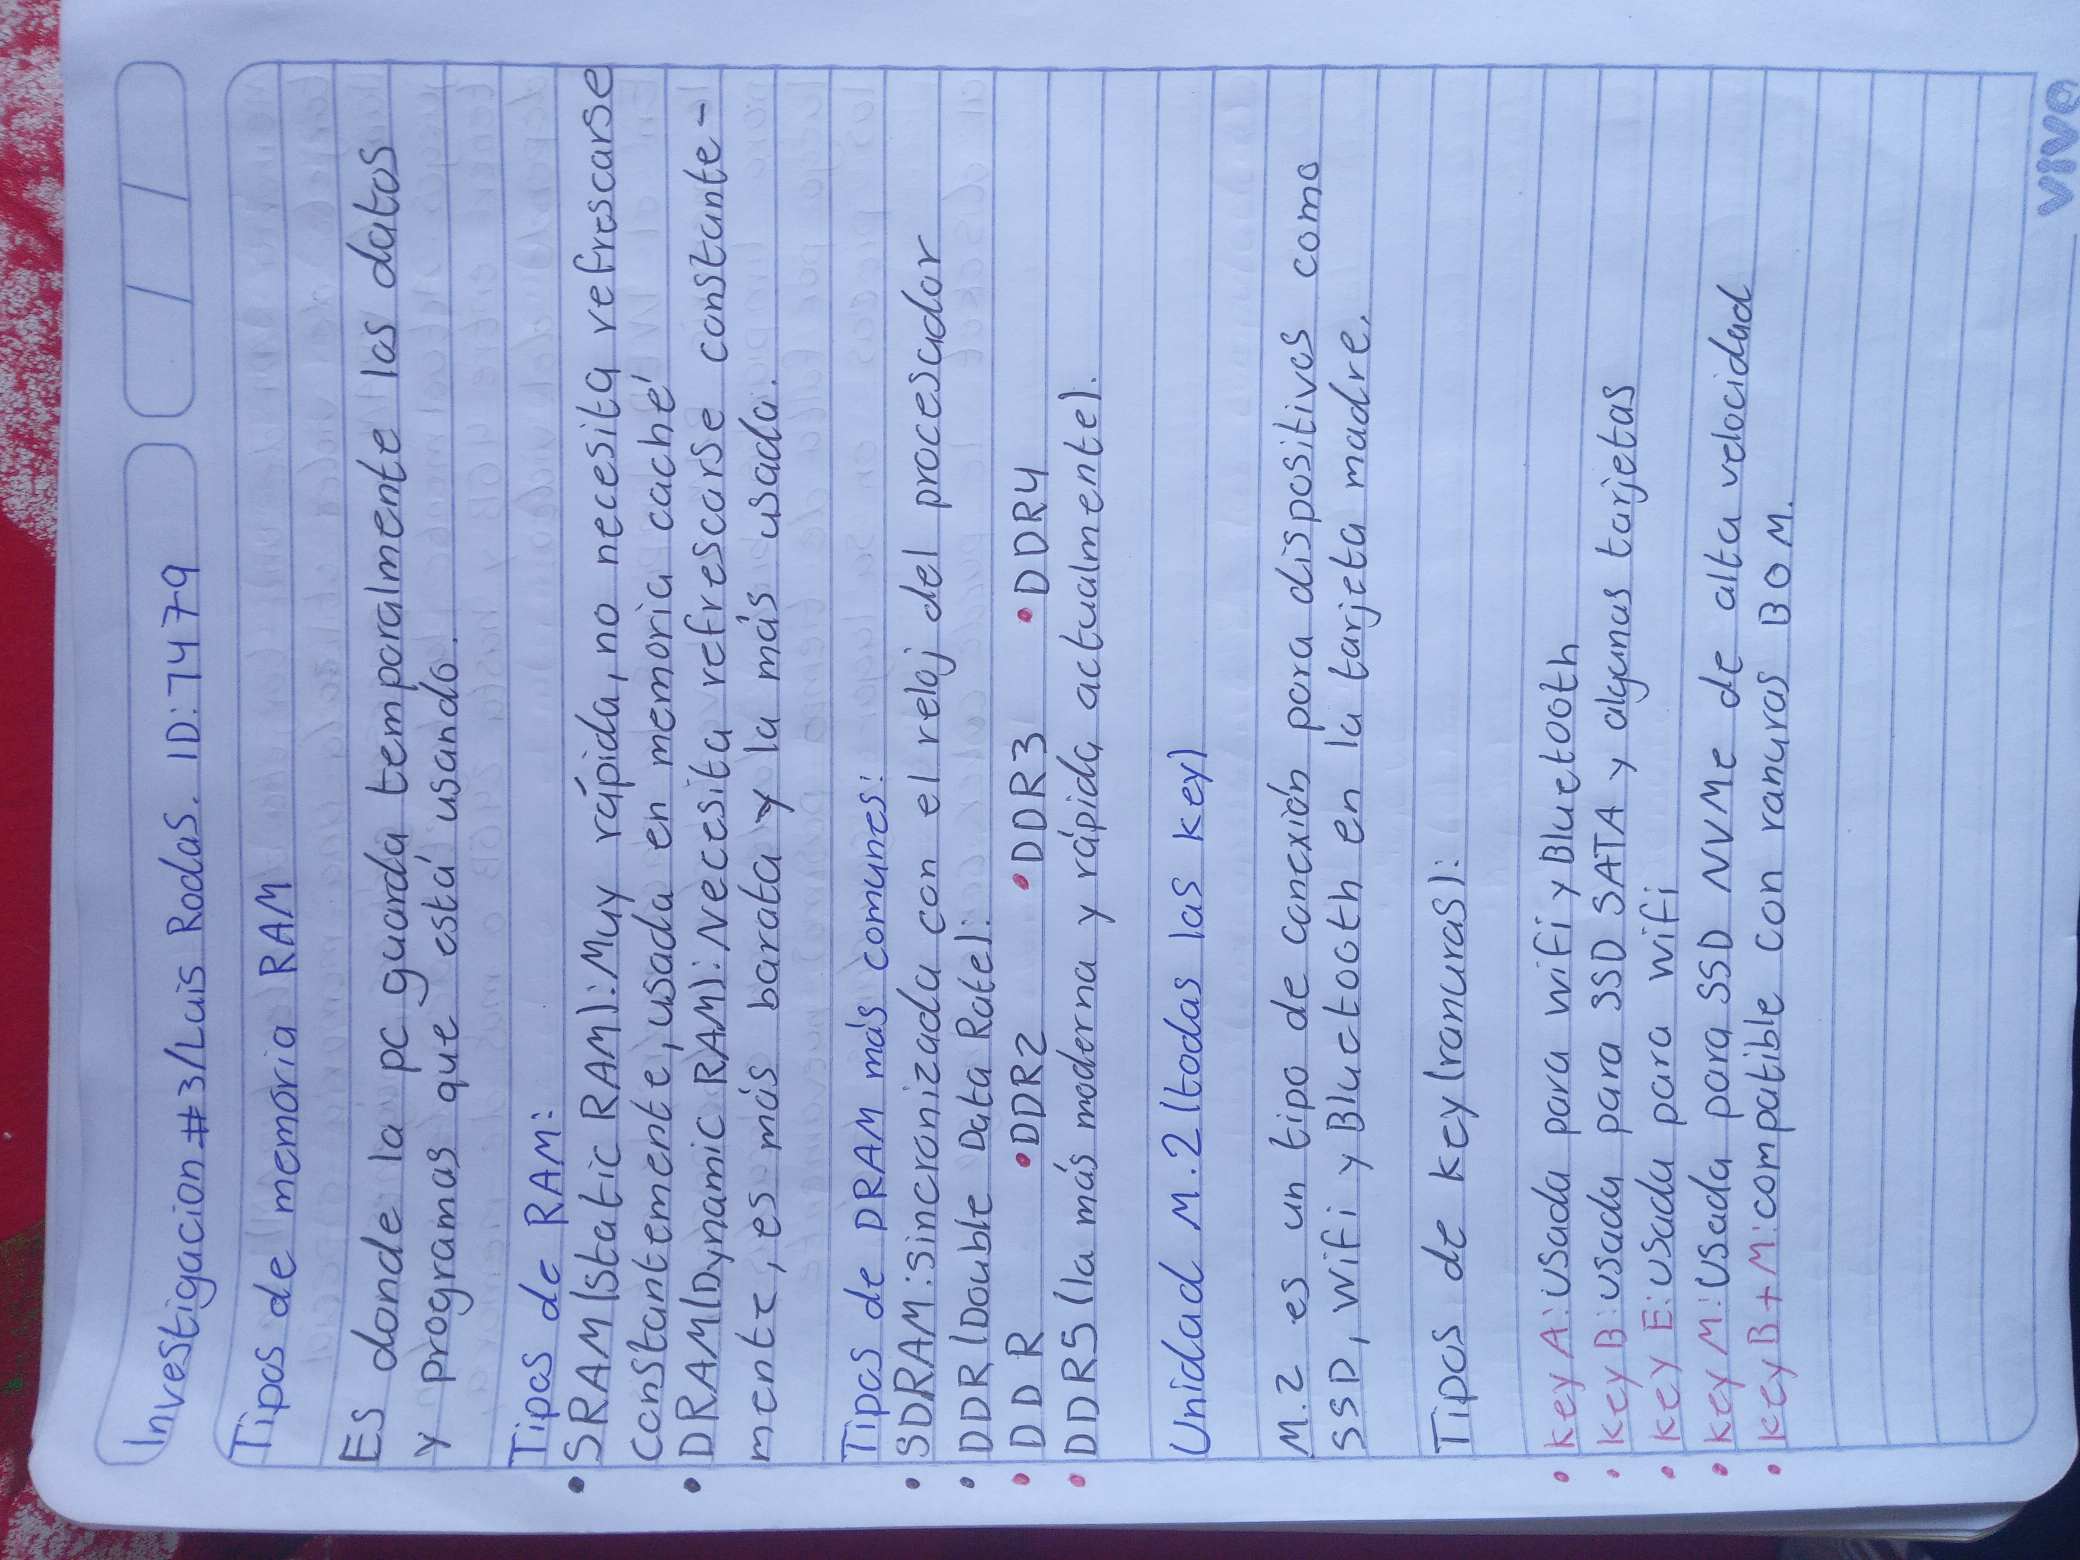 Investigacion #3/Luis Rodas. ID:7479
/ /
Tipos de memoria RAM
Es donde la pc guarda temporalmente los datos
y programas que está usando.
Tipos de RAM:
• SRAM(Static RAM): Muy rápida, no necesita refrescarse
constantemente, usada en memoria caché
• DRAM(Dynamic RAM): Necesita refrescarse constante-
mente, es más barata y la más usada.
Tipos de DRAM más comunes:
• SDRAM: sincronizada con el reloj del procesador
• DDR(Double Data Rate):
• DDR • DDR2 • DDR3 • DDR4
• DDR5 (la más moderna y rápida actualmente).
Unidad M.2(todas las key)
M.2 es un tipo de conexión para dispositivos como
SSD, wifi y Bluetooth en la tarjeta madre.
Tipos de key(ranuras):
• key A: usada para wifi y Bluetooth
• key B: usada para SSD SATA y algunas tarjetas
• key E: usada para wifi
• key M: usada para SSD NVMe de alta velocidad
• key B+M: compatible con ranuras B O M.
vivo